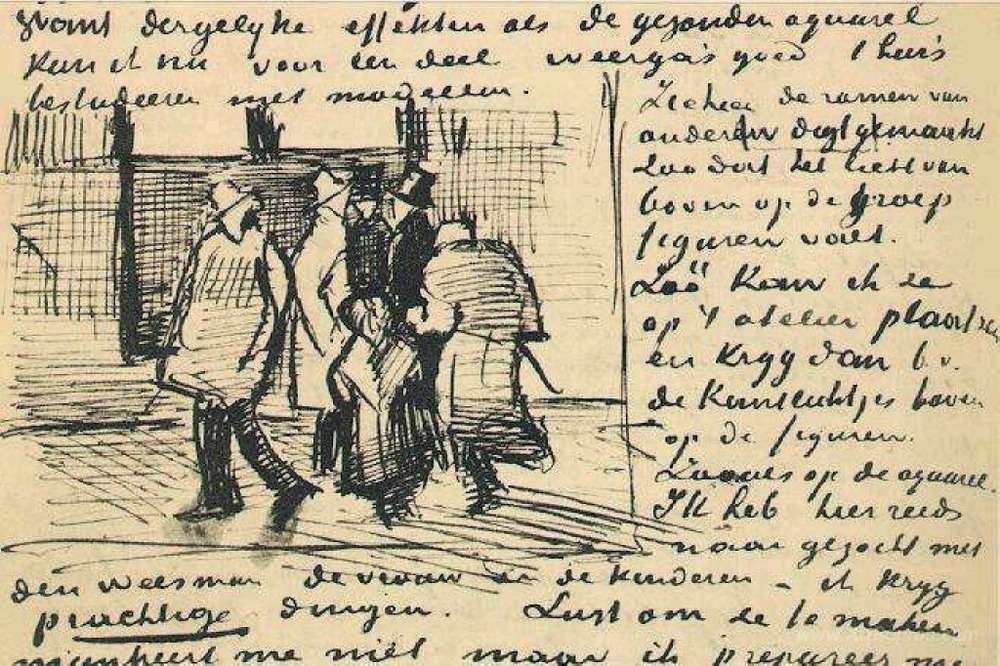 want dergelyke effekten als de gezonden aquarel
kan ik nu voor een deel weergaas goed t huis
bestudeeren met modellen.
Ik heb de ramen van
onderen digt gemaakt
Zoo dat het licht van
boven op de groep
figuren valt.
Zóó kan ik ze
op 't atelier plaatsen
en kryg dan b.v.
de kantlichtjes boven
op de figuren.
Zooals op de aquarel.
Ik heb hier reeds
naar gezocht met
den weesman de vrouw en de kinderen – ik kryg
prachtige dingen. Lust om ze te maken
mankeert me niet maar ik prepareer